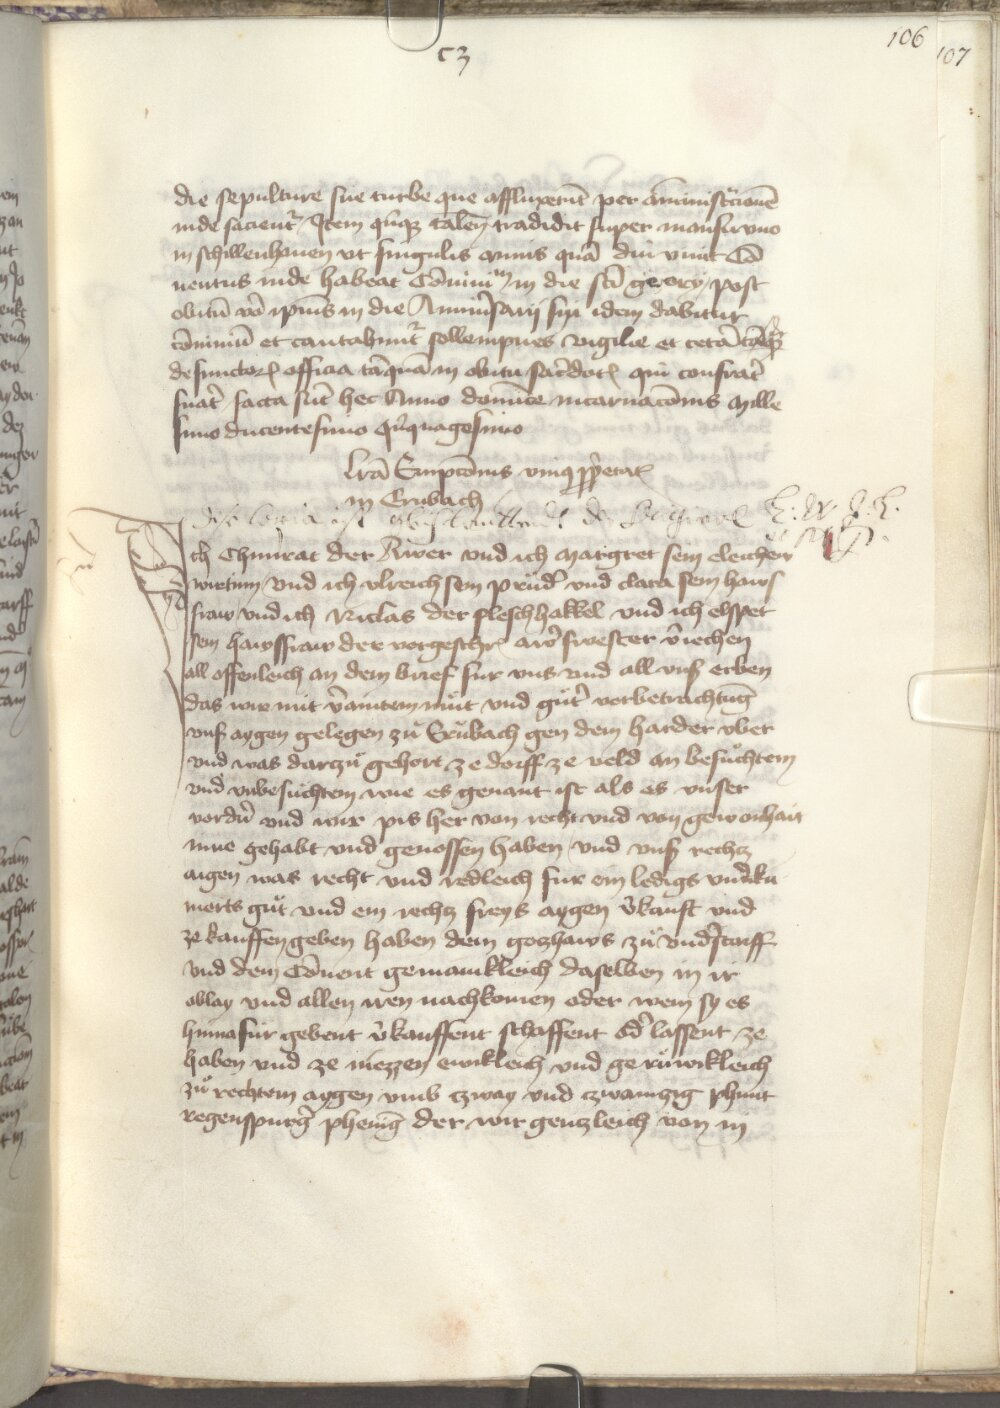 106
107
c3
die sepulture sue turbe que affluxerūt per āministrationē
inde facient᷑ Item qͥnqꝫ talen̄ tradidit super mansū vno
in schillenhauen vt singulis annis quā diu vixit Cō
uentus inde habeat Cōniuiū in die sc̄i gregorij post
obitū v̄o ip̄ius in die Anniu̓sarij sui idem dabitur
cōniuiū et cantabunt᷑ sollempnes vigilie et cetā
defunctoꝝ officia tāquā in obitu sac̄dotꝭ qui confrat̓
fuat̓ facta sūt hec Anno domīce incarnacōnis Mille
simo ducentesimo Qͥnquagesimo
Lr̄a Empcōnis
in Grubach
Ich Chunrat der Aiwer vnd ich Margret sein eleichew
wirtinn vnd ich vlreich sein prud̓ vnd clara sein haws
fraw vnd ich Niclas der pleschhakkel vnd ich elspet
sein hawsfraw der vorgeschꝛ̄ aiw̓ swester v̓iechen
all offenleich an dem brief fur vns vnd all vnß erben
das wir mit v̓aintem mut vnd gut̓ vorbetrachtūg
vnß aygen gelegen zu Grubach gen dem harder vber
vnd was darzu gehort ze dorff ze veld an besuchtem
vnd vnbesuchtem wie es genant ist als es vnser
vordn̓ vnd wir pis her von recht vnd von gewonhait
inne gehabt vnd genossen haben vnd vnß rechtz
aigen was recht vnd redleich fur ein ledigs vnu̓ku
merts gut vnd ein rechtz freys aygen v̓kauft vnd
ze kauffen geben haben dem gotzhaws zu vnd̓storff
vnd dem Conuent gemainkleich daselben in ir
oblay vnd allen iren nachkomen oder wem sy es
hinnafur gebent v̓kauffent schaffent od̓ lassent ze
haben vnd ze niezzen ewikleich vnd geruwikleich
zu rechtem aygen vmb zway vnd zwaintzig phunt
regenspurg̓ phenīg der wir gentzleich von in